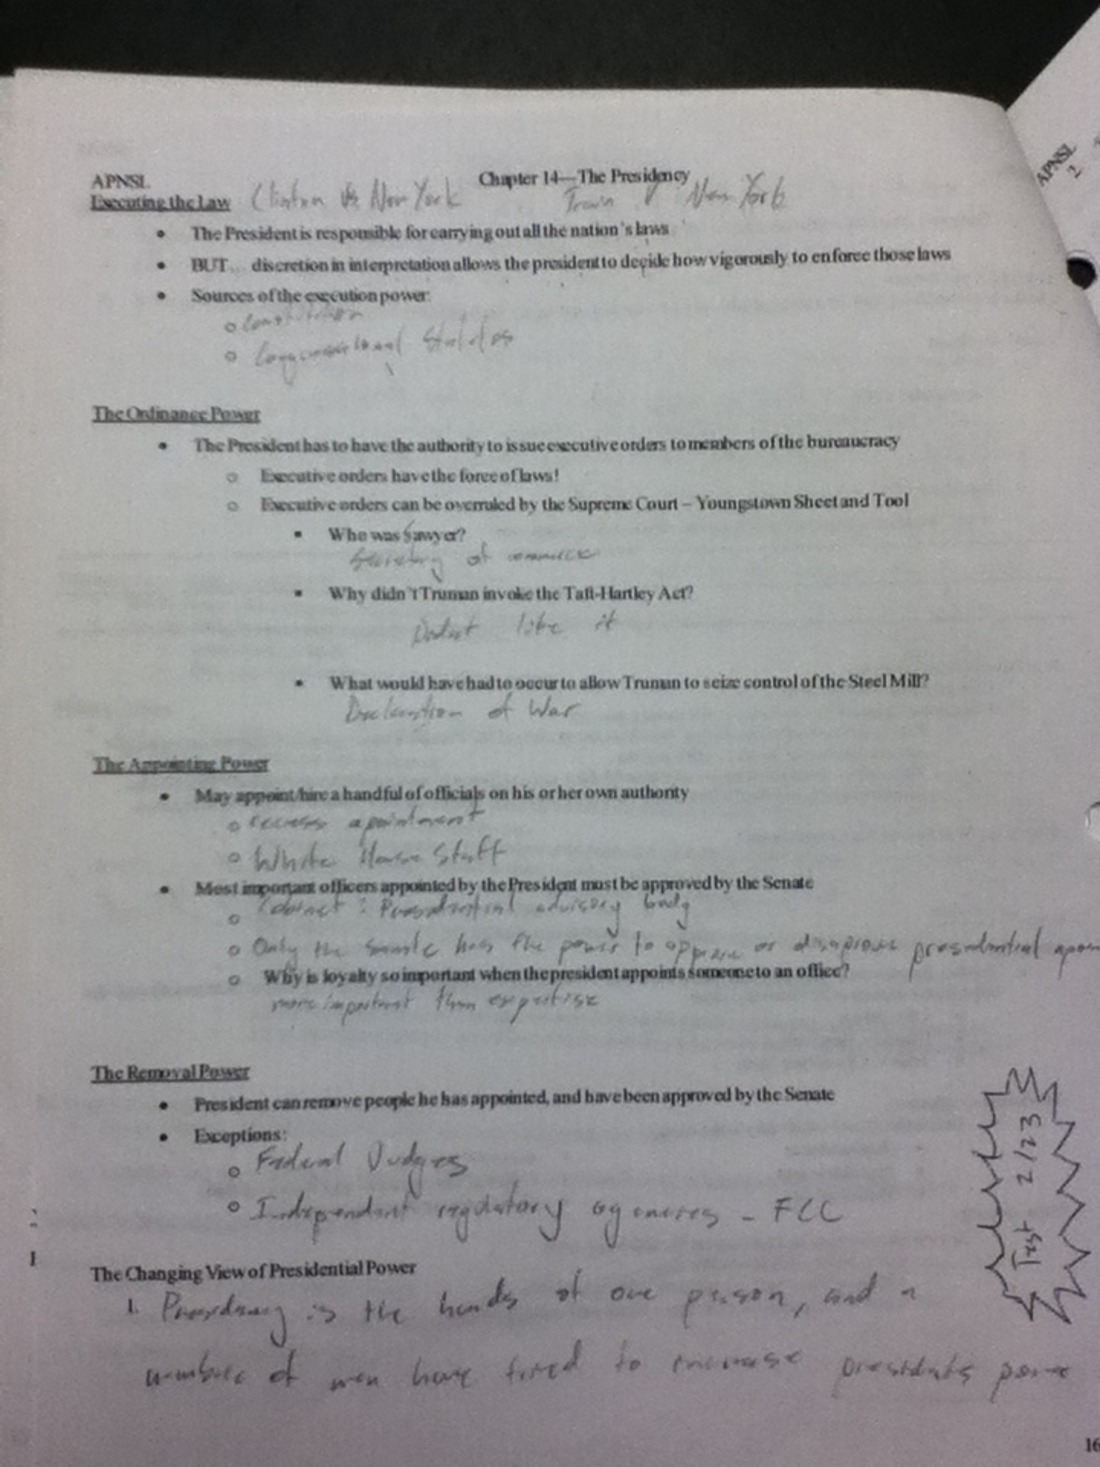 APNSL
Chapter 14—The Presidency
Executing the Law Clinton Vs New York Train v New York
• The President is responsible for carrying out all the nation's laws
• BUT… discretion in interpretation allows the president to decide how vigorously to enforce those laws
• Sources of the execution power:
o Constitution
o Congressional
The Ordinance Power
• The President has to have the authority to issue executive orders to members of the bureaucracy
o Executive orders have the force of laws!
o Executive orders can be overruled by the Supreme Court – Youngstown Sheet and Tool
▪ Who was Sawyer?
Secretary of commerce
▪ Why didn't Truman invoke the Taft-Hartley Act?
Didnt like it
▪ What would have had to occur to allow Truman to seize control of the Steel Mill?
Declaration of War
The Appointing Power
• May appoint/hire a handful of officials on his or her own authority
o recess apointment
o White House Staff
• Most important officers appointed by the President must be approved by the Senate
o Cabinet: Presidential advisory body
o Only the senate has the power to approve or disaprove presidential
o Why is loyalty so important when the president appoints someone to an office?
more important than expertise
The Removal Power
• President can remove people he has appointed, and have been approved by the Senate
• Exceptions:
o Federal Judges
o Independent regulatory agencies - FCC
Test 2/23
The Changing View of Presidential Power
1. Presidency is the hands of one person, and a
number of men have tried to increase presidents power
16
APNSL
2